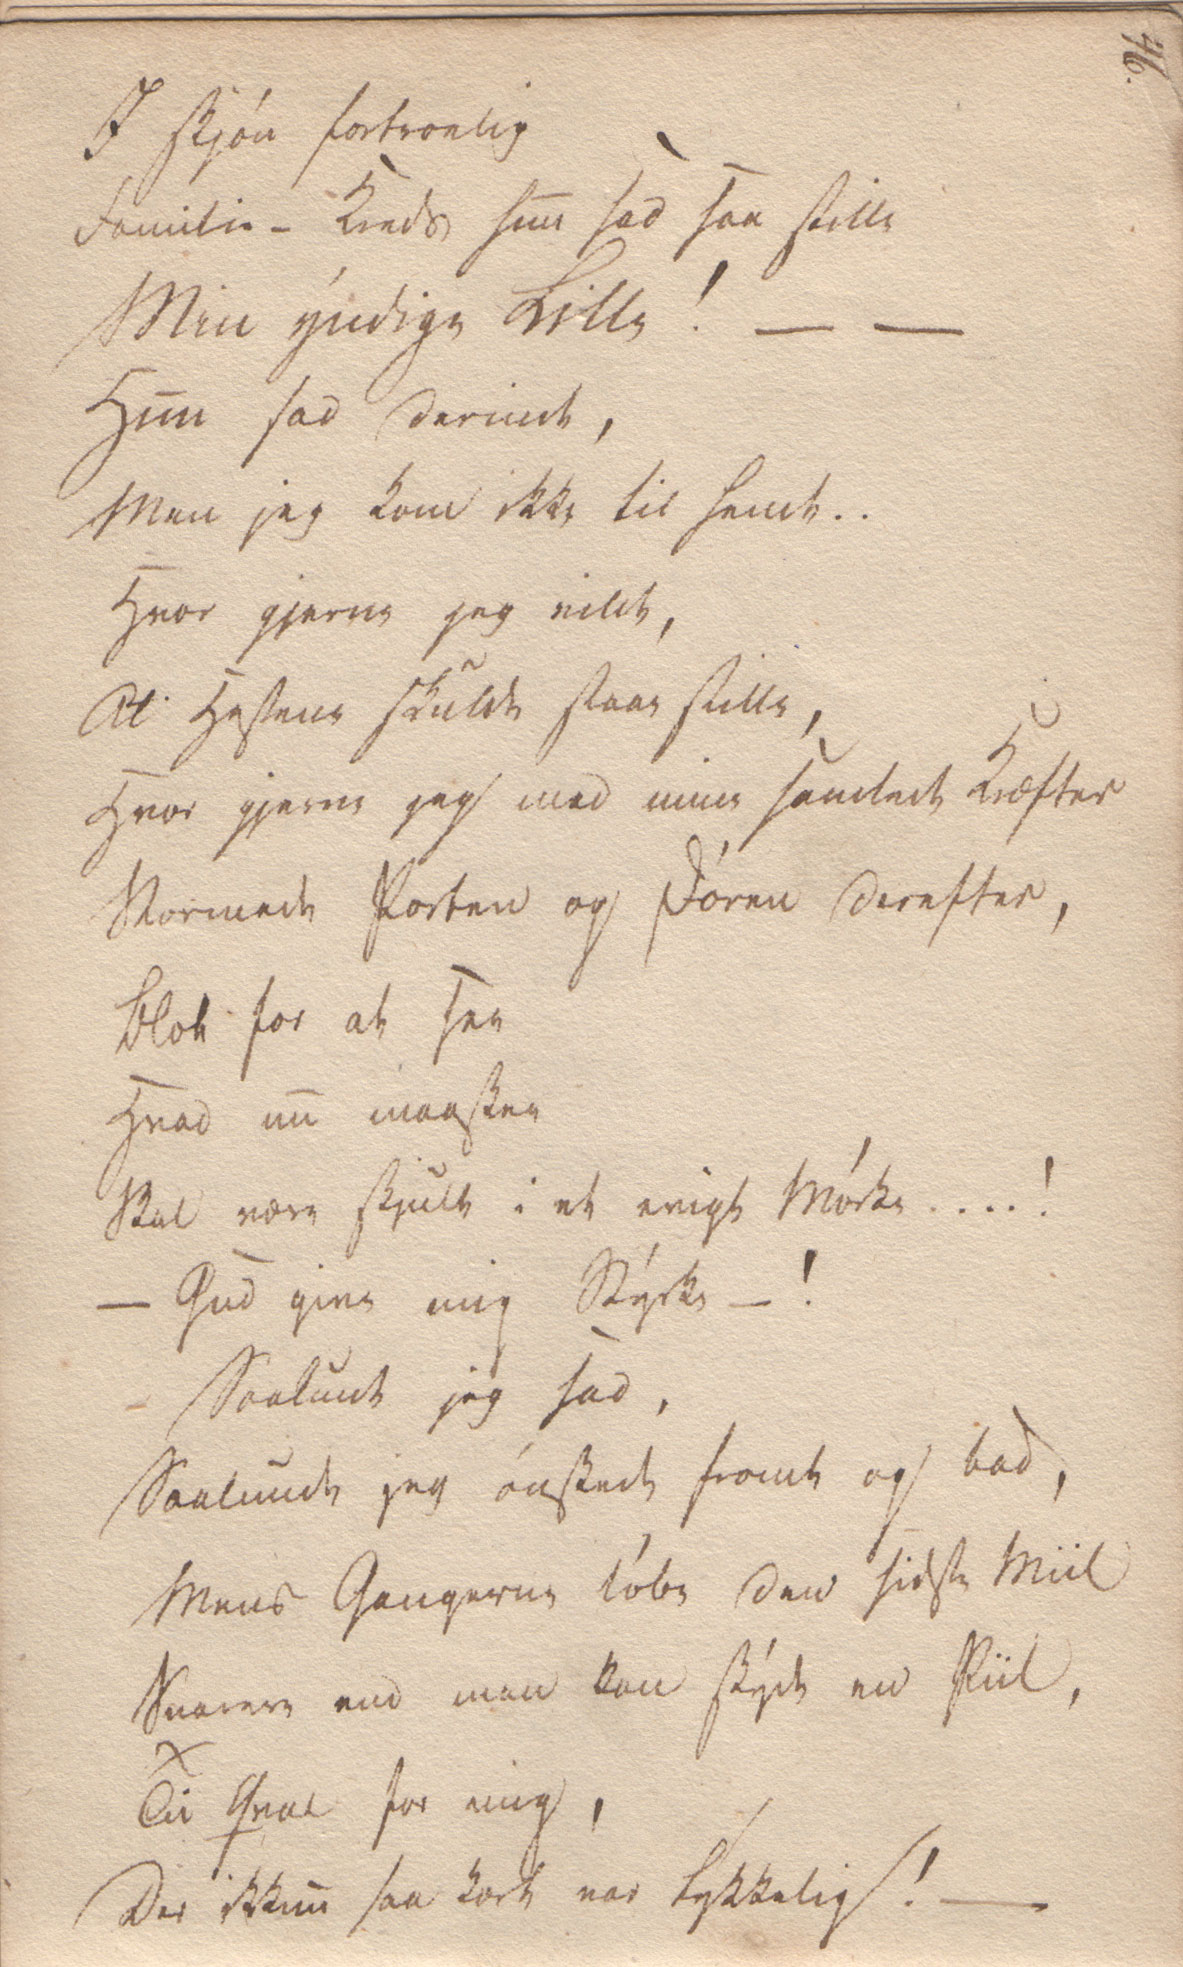 46.
I skjón fortroelig
Familie-Kreds hun sad saa stille
Min ÿndige Lille! — —
Hun sad derinde,
Men jeg kom ikke til hende..
Hvor gjerne jeg vilde,
At Hestene skulde staae stille,
Hvor gjerne jeg med mine samlede Kræfter
Stormede Porten og Dóren derefter,
Blot for at see
Hvad nu maaskee
Skal være skjult i et evigt Mórke....!
— Gud give mig Stÿrke —!
Saalunde jeg sad,
Saalunde jeg ónskede fromt og bad,
Mens Gangerne lóbe den sidste Miil
Snarere end man kan skÿde en Piil,
Til Qval for mig,
Der ikkun saa kort var lykkelig! —